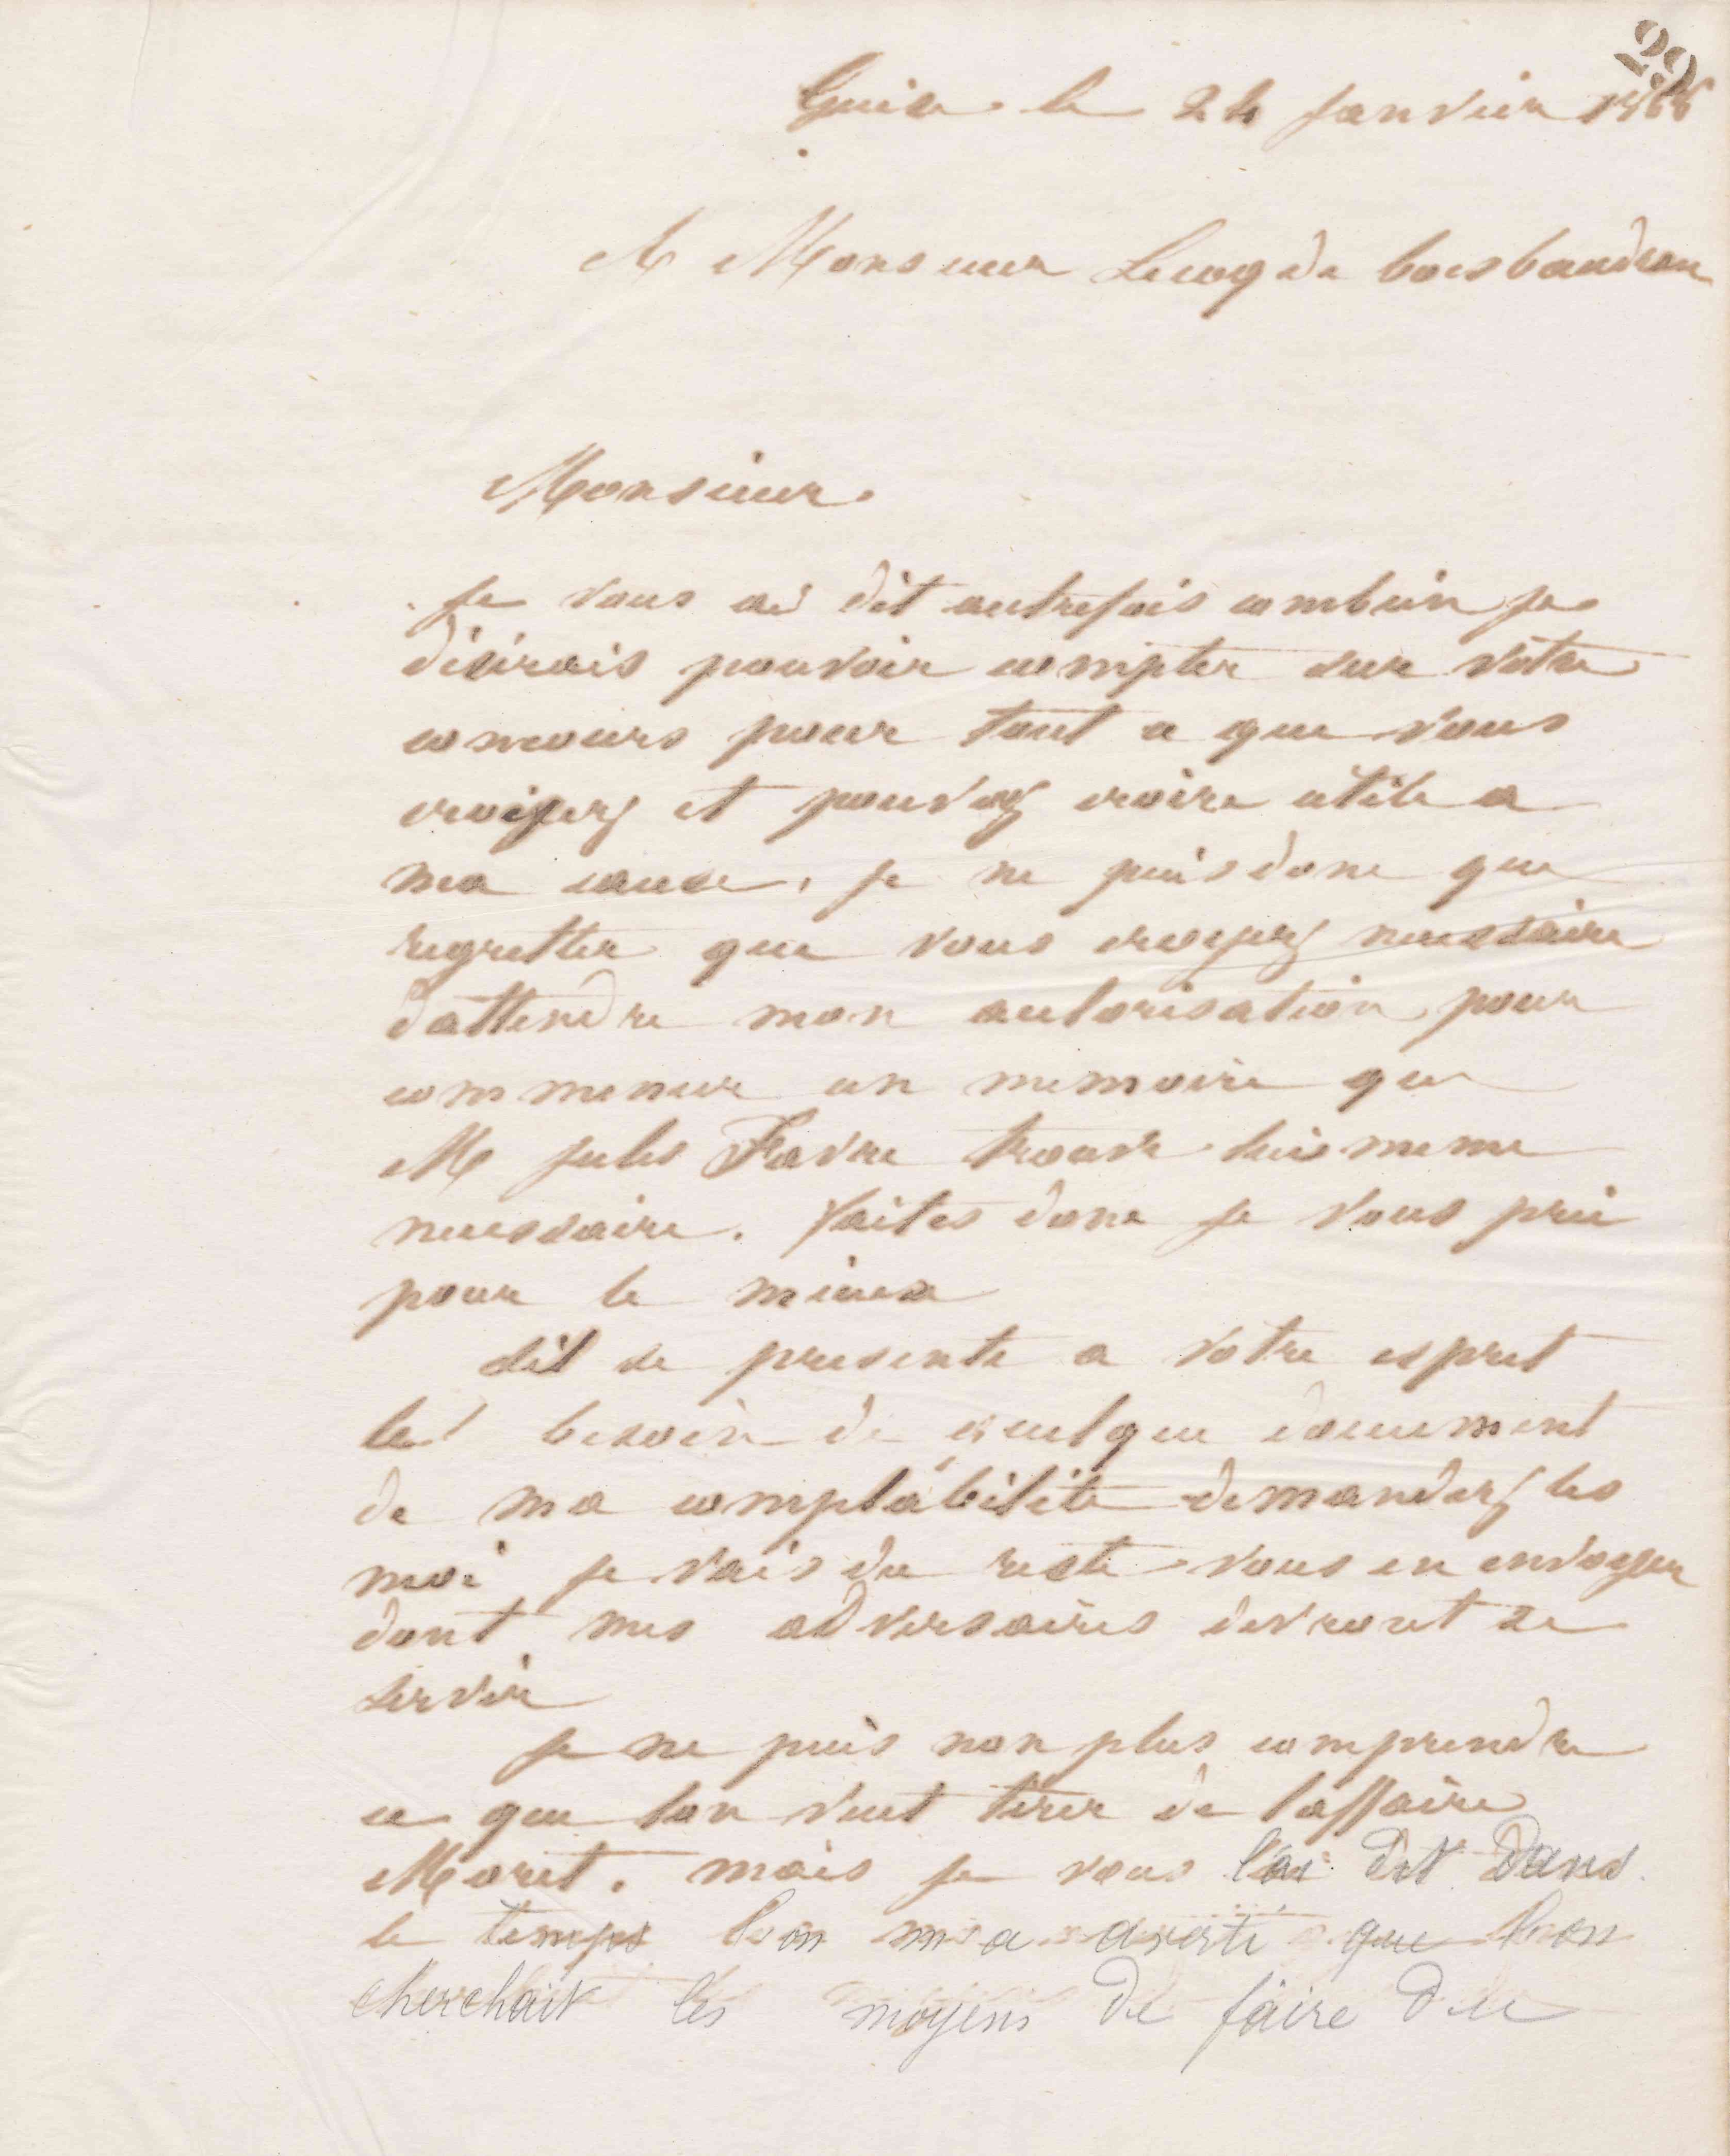 29
Guise le 24 Janvier 1866
A Monsieur Lecoq de boisbaudran
Monsieur
Je vous ai dit autrefois combien je
désirais pouvoir compter sur votre
concours pour tout ce que vous
croiyez et pouvez croire utile a
ma cause, je ne puis donc que
regretter que vous croyez necessaire
dattendre mon autorisation pour
commencer un memoire que
Me Jules Favre trouve lui meme
necessaire. faites donc je vous prie
pour le mieux
sil se presente a votre esprit
le besoin de quelque document
de ma comptabilité demandez les
moi je vais du reste vous en envoyer
dont mes adversaires devront se
servir
Je ne puis non plus comprendre
ce que lon veut tirer de laffaire
Moret. mais je vous l'ai dit dans
le temps l'on m'a averti que l'on
cherchait les moyens de faire du